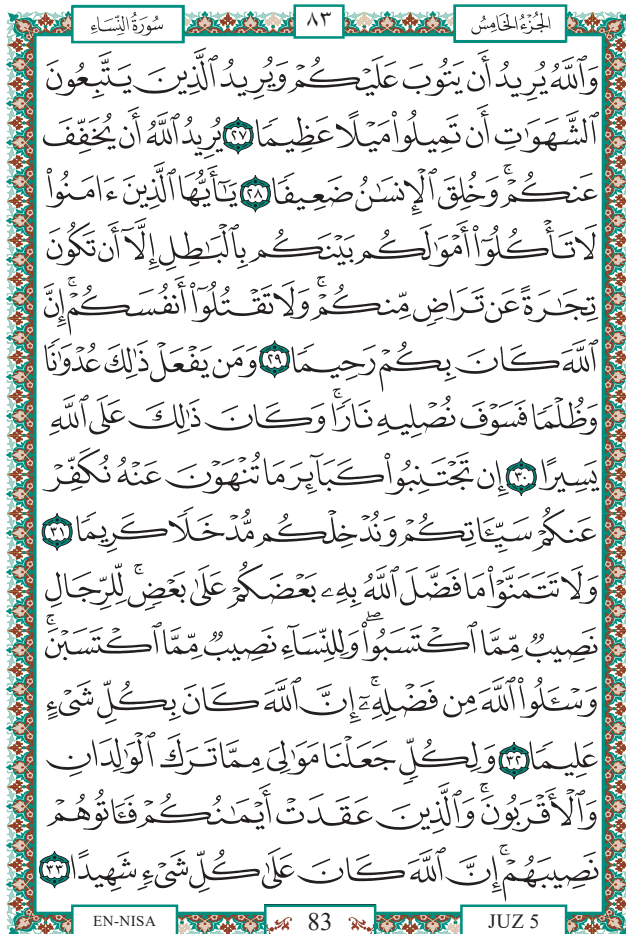 سُورَةُ النِّسَاءِ ٨٣ الْجُزْءُ الْخَامِسُ
وَٱللَّهُ يُرِيدُ أَن يَتُوبَ عَلَيْكُمْ وَيُرِيدُ ٱلَّذِينَ يَتَّبِعُونَ
ٱلشَّهَوَٰتِ أَن تَمِيلُوا۟ مَيْلًا عَظِيمًا ٢٧ يُرِيدُ ٱللَّهُ أَن يُخَفِّفَ
عَنكُمْ ۚ وَخُلِقَ ٱلْإِنسَٰنُ ضَعِيفًا ٢٨ يَٰٓأَيُّهَا ٱلَّذِينَ ءَامَنُوا۟
لَا تَأْكُلُوٓا۟ أَمْوَٰلَكُم بَيْنَكُم بِٱلْبَٰطِلِ إِلَّآ أَن تَكُونَ
تِجَٰرَةً عَن تَرَاضٍ مِّنكُمْ ۚ وَلَا تَقْتُلُوٓا۟ أَنفُسَكُمْ ۚ إِنَّ
ٱللَّهَ كَانَ بِكُمْ رَحِيمًا ٢٩ وَمَن يَفْعَلْ ذَٰلِكَ عُدْوَٰنًا
وَظُلْمًا فَسَوْفَ نُصْلِيهِ نَارًا ۚ وَكَانَ ذَٰلِكَ عَلَى ٱللَّهِ
يَسِيرًا ٣٠ إِن تَجْتَنِبُوا۟ كَبَآئِرَ مَا تُنْهَوْنَ عَنْهُ نُكَفِّرْ
عَنكُمْ سَيِّـَٔاتِكُمْ وَنُدْخِلْكُم مُّدْخَلًا كَرِيمًا ٣١
وَلَا تَتَمَنَّوْا۟ مَا فَضَّلَ ٱللَّهُ بِهِۦ بَعْضَكُمْ عَلَىٰ بَعْضٍ ۚ لِّلرِّجَالِ
نَصِيبٌ مِّمَّا ٱكْتَسَبُوا۟ ۖ وَلِلنِّسَآءِ نَصِيبٌ مِّمَّا ٱكْتَسَبْنَ ۚ
وَسْـَٔلُوا۟ ٱللَّهَ مِن فَضْلِهِۦٓ ۗ إِنَّ ٱللَّهَ كَانَ بِكُلِّ شَىْءٍ
عَلِيمًا ٣٢ وَلِكُلٍّ جَعَلْنَا مَوَٰلِىَ مِمَّا تَرَكَ ٱلْوَٰلِدَانِ
وَٱلْأَقْرَبُونَ ۚ وَٱلَّذِينَ عَقَدَتْ أَيْمَٰنُكُمْ فَـَٔاتُوهُمْ
نَصِيبَهُمْ ۚ إِنَّ ٱللَّهَ كَانَ عَلَىٰ كُلِّ شَىْءٍ شَهِيدًا ٣٣
EN-NISA 83 JUZ 5